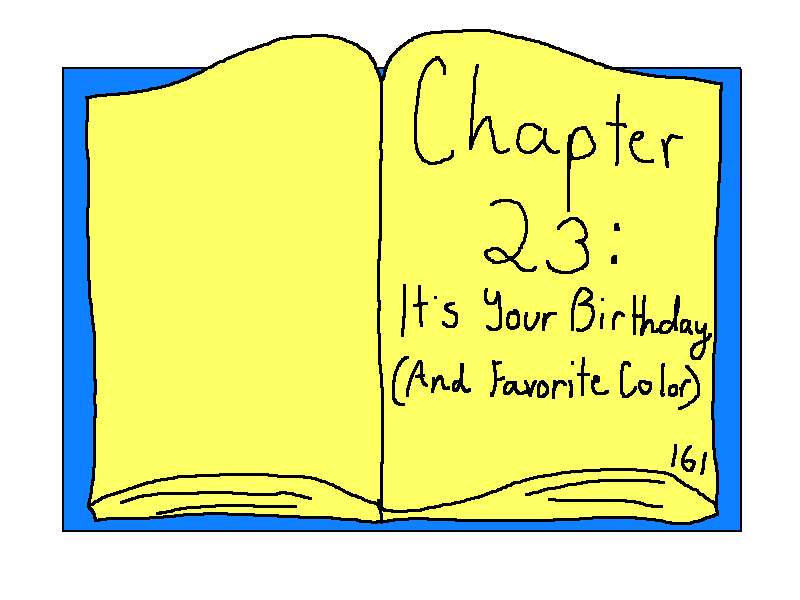 Chapter
23:
It's Your Birthday
(And Favorite Color)
161